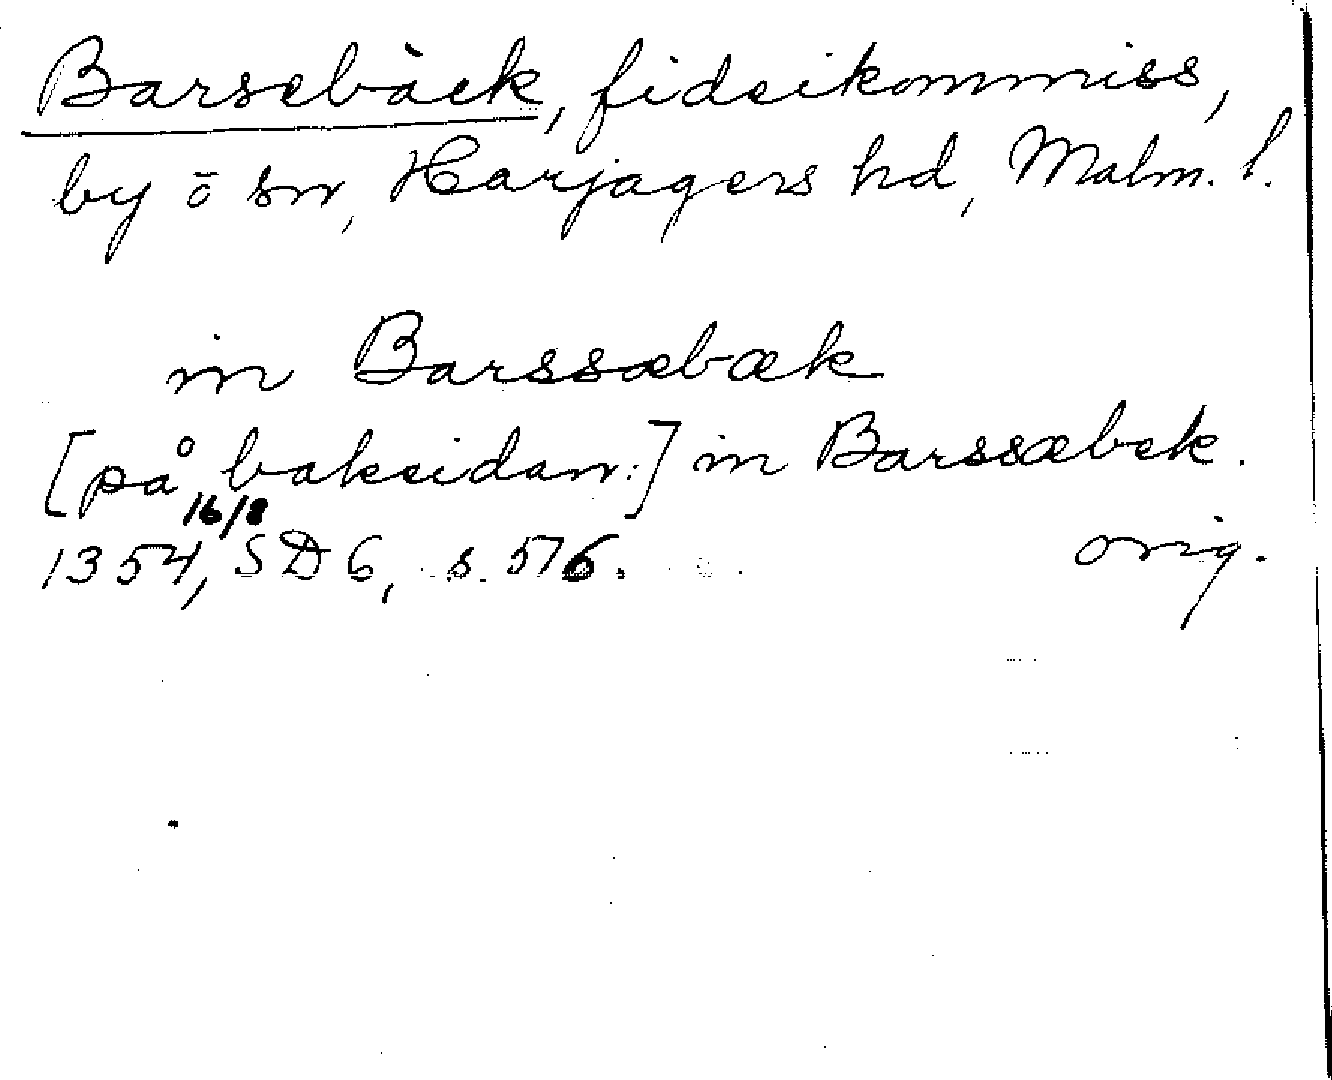 Barsebäck, fideikommiss,
by o sn, Harjagers hd, Malm. l.
in Barssæbæk
[på baksidan:] in Barssæbek.
16/8
1354, SD 6, s. 576. orig.